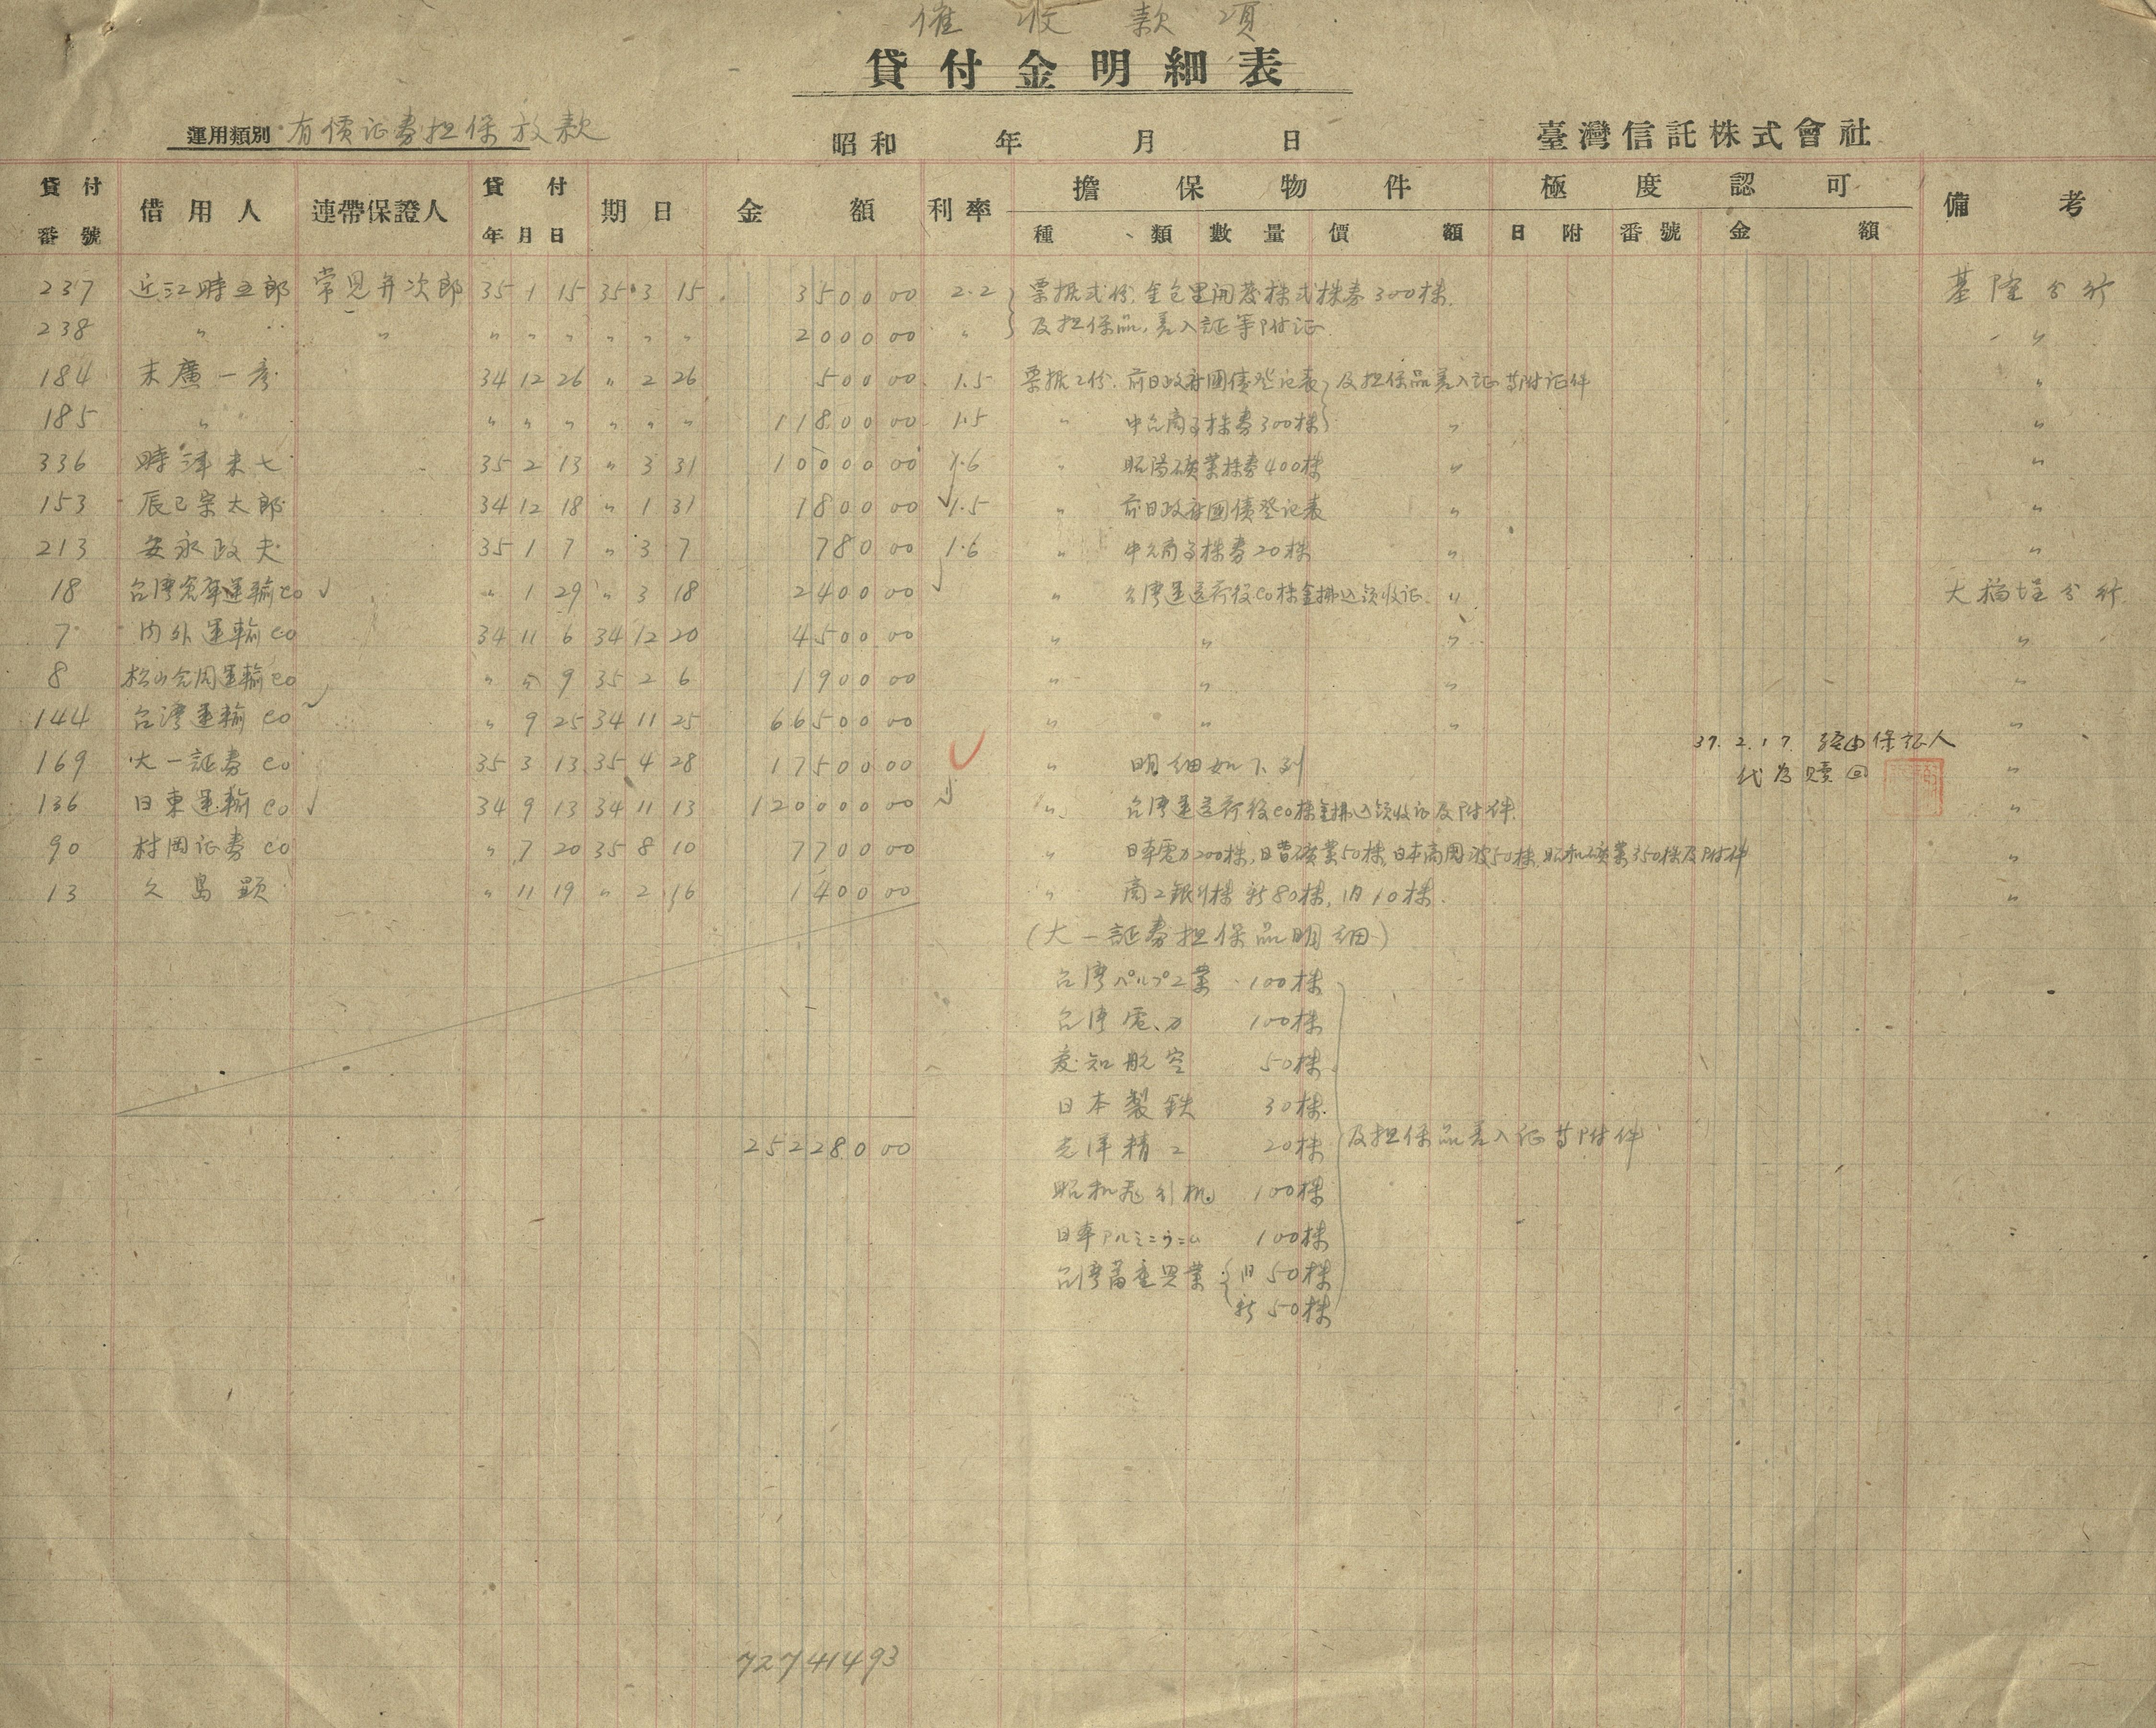 催收款項
貸付金明細表
運用類別 有價証券担保放款
昭和 年 月 日
臺灣信託株式會社
貸付番號 借用人 連帶保證人 貸付年月日 期日 金額 利率 擔保物件 極度認可 備考
種類 數量 價額 日附 番號 金額
237 近江時五郎 常見弁次郎 35 1 15 35 3 15 3500 00 2.2 票据弍份. 金包里開發株式株券300株. 基隆分行
238 〃 〃 〃 〃 〃 〃 〃 〃 2000 00 〃 及担保品差入証等附証 〃
184 末廣一彥 34 12 26 〃 2 26 500 00 1.5 票据2份. 前日政府國債登記表 及担保品差入証等附証件 〃
185 〃 〃 〃 〃 〃 〃 〃 11800 00 1.5 〃 株券300株 〃 〃
336 時津末七 35 2 13 〃 3 31 10000 00 1.6 〃 昭陽礦業株券400株 〃 〃
153 辰巳宗太郎 34 12 18 〃 1 31 1800 00 1.5 〃 前日政府國債登記表 〃 〃
213 安永政夫 35 1 7 〃 3 7 780 00 1.6 〃 株券20株 〃 〃
18 台湾倉庫運輸co 〃 1 29 〃 3 18 2400 00 〃 台湾運送荷役co株金拂込領收証 〃 大稻埕分行
7 内外運輸co 34 11 6 34 12 20 4500 00 〃 〃 〃 〃
8 松山合同運輸co 〃 〃 9 35 2 6 1900 00 〃 〃 〃 〃
144 台湾運輸co 〃 9 25 34 11 25 66500 00 〃 〃 〃 〃
37.2.17. 経由保証人
169 大一証券co 35 3 13 35 4 28 17500 00 〃 明細如下列 〃
代為贖回
136 日東運輸co 34 9 13 34 11 13 120000 00 〃 台湾運送荷役co株金拂込領收証及附件. 〃
90 村岡証券co 〃 7 20 35 8 10 7700 00 〃 200株, 日曹礦業50株, 50株, 昭和礦業350株及附件 〃
13 久島顕 〃 11 19 〃 2 16 1400 00 〃 商工銀行株 新80株, 旧10株. 〃
(大一証券担保品明細)
台湾パルプ工業 100株
台湾電力 100株
愛知航空 50株
日本製鉄 30株
252280 00 光洋精工 20株 及担保品差入証等附件
昭和飛行機 100株
アルミニウム 100株
台湾畜産興業 旧 50株
新 50株
727414 93